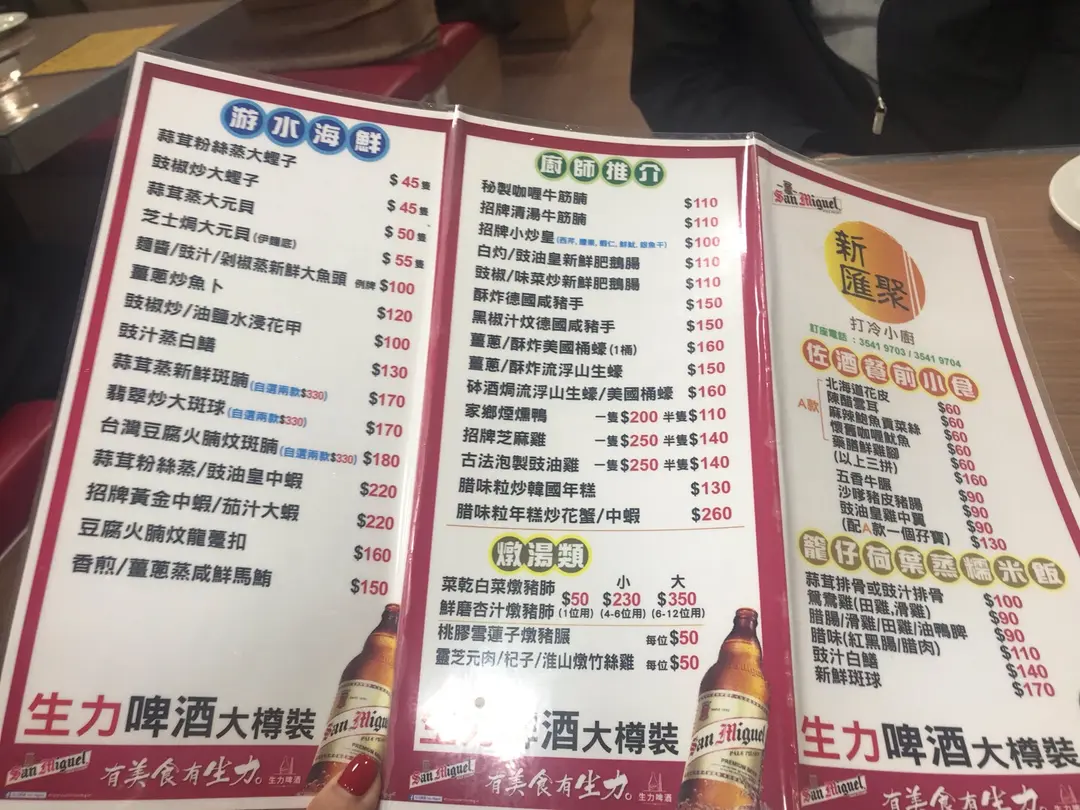 游水海鮮
蒜茸粉絲蒸大蟶子 $45隻
豉椒炒大蟶子 $45隻
蒜茸蒸大元貝 $50隻
芝士焗大元貝(伊麵底) $55隻
麵醬/豉汁/剁椒蒸新鮮大魚頭 例牌$100
薑蔥炒魚卜 $120
豉椒炒/油鹽水浸花甲 $100
豉汁蒸白鱔 $130
蒜茸蒸新鮮斑腩(自選兩款$330) $170
翡翠炒大斑球(自選兩款$330) $170
台灣豆腐火腩炆斑腩(自選兩款$330) $180
蒜茸粉絲蒸/豉油皇中蝦 $220
招牌黃金中蝦/茄汁大蝦 $220
豆腐火腩炆龍躉扣 $160
香煎/薑蔥蒸咸鮮馬鮪 $150
生力啤酒大樽裝
San Miguel
PREMIUM
San Miguel
有美食有生力。
生力啤酒
廚師推介
秘製咖喱牛筋腩 $110
招牌清湯牛筋腩 $110
招牌小炒皇 $100
白灼/豉油皇新鮮肥鵝腸 $110
豉椒/味菜炒新鮮肥鵝腸 $110
酥炸德國咸豬手 $150
黑椒汁炆德國咸豬手 $150
薑蔥/酥炸美國桶蠔(1桶) $160
薑蔥/酥炸流浮山生蠔 $150
砵酒焗流浮山生蠔/美國桶蠔 $160
家鄉煙燻鴨 一隻$200 半隻$110
招牌芝麻雞 一隻$250 半隻$140
古法泡製豉油雞 一隻$250 半隻$140
腊味粒炒韓國年糕 $130
腊味粒年糕炒花蟹/中蝦 $260
燉湯類
小 大
菜乾白菜燉豬肺
鮮磨杏汁燉豬肺 $50 $230 $350
(1位用) (4-6位用) (6-12位用)
桃膠雪蓮子燉豬𦟌 每位$50
靈芝元肉/杞子/淮山燉竹絲雞 每位$50
生力啤酒大樽裝
San Miguel
PALE PILSEN
San Miguel
有美食有生力。
生力啤酒
San Miguel
新匯聚
打冷小廚
訂座電話：3541 9703 / 3541 9704
佐酒餐前小食
A款
北海道花皮 $60
陳醋雲耳 $60
麻辣鮑魚貢菜絲 $60
懷舊咖喱魷魚 $60
藥膳鮮雞腳 $60
(以上三拼) $160
五香牛𦟌 $90
沙嗲豬皮豬腸 $90
豉油皇雞中翼 $90
(配A款一個孖寶) $130
籠仔荷葉蒸糯米飯
蒜茸排骨或豉汁排骨 $100
鴛鴦雞(田雞,滑雞) $90
腊腸/滑雞/田雞/油鴨脾 $90
腊味(紅黑腸/腊肉) $110
豉汁白鱔 $140
新鮮斑球 $170
生力啤酒大樽裝
San Miguel
有美食有生力。